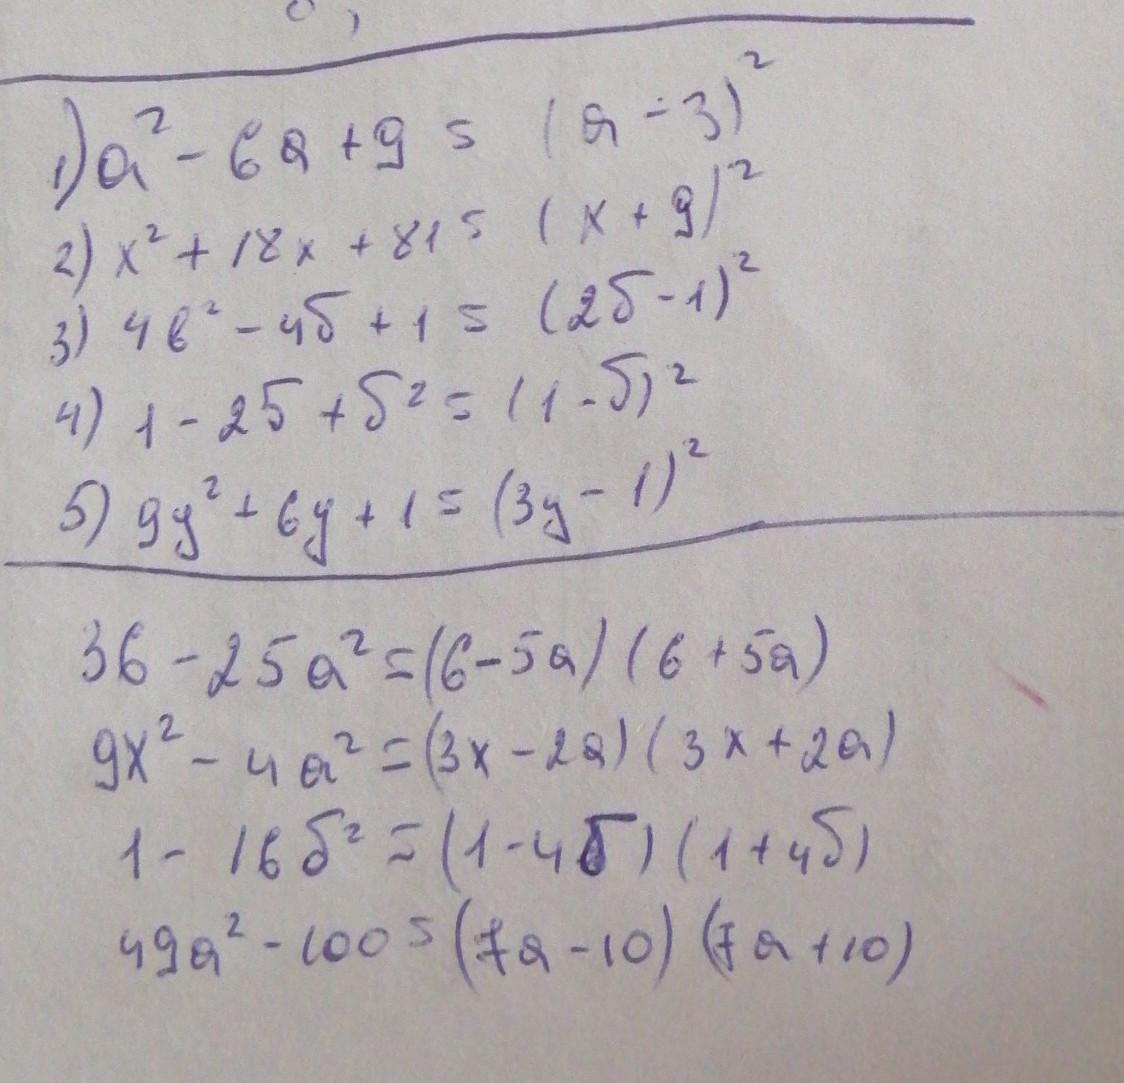 1) a² - 6a + 9 = (a - 3)²
2) x² + 18x + 81 = (x + 9)²
3) 4в² - 4б + 1 = (2б - 1)²
4) 1 - 2б + б² = (1 - б)²
5) 9y² + 6y + 1 = (3y - 1)²
36 - 25a² = (6 - 5a) (6 + 5a)
9x² - 4a² = (3x - 2a) (3x + 2a)
1 - 16б² = (1 - 4б) (1 + 4б)
49a² - 100 = (7a - 10) (7a + 10)